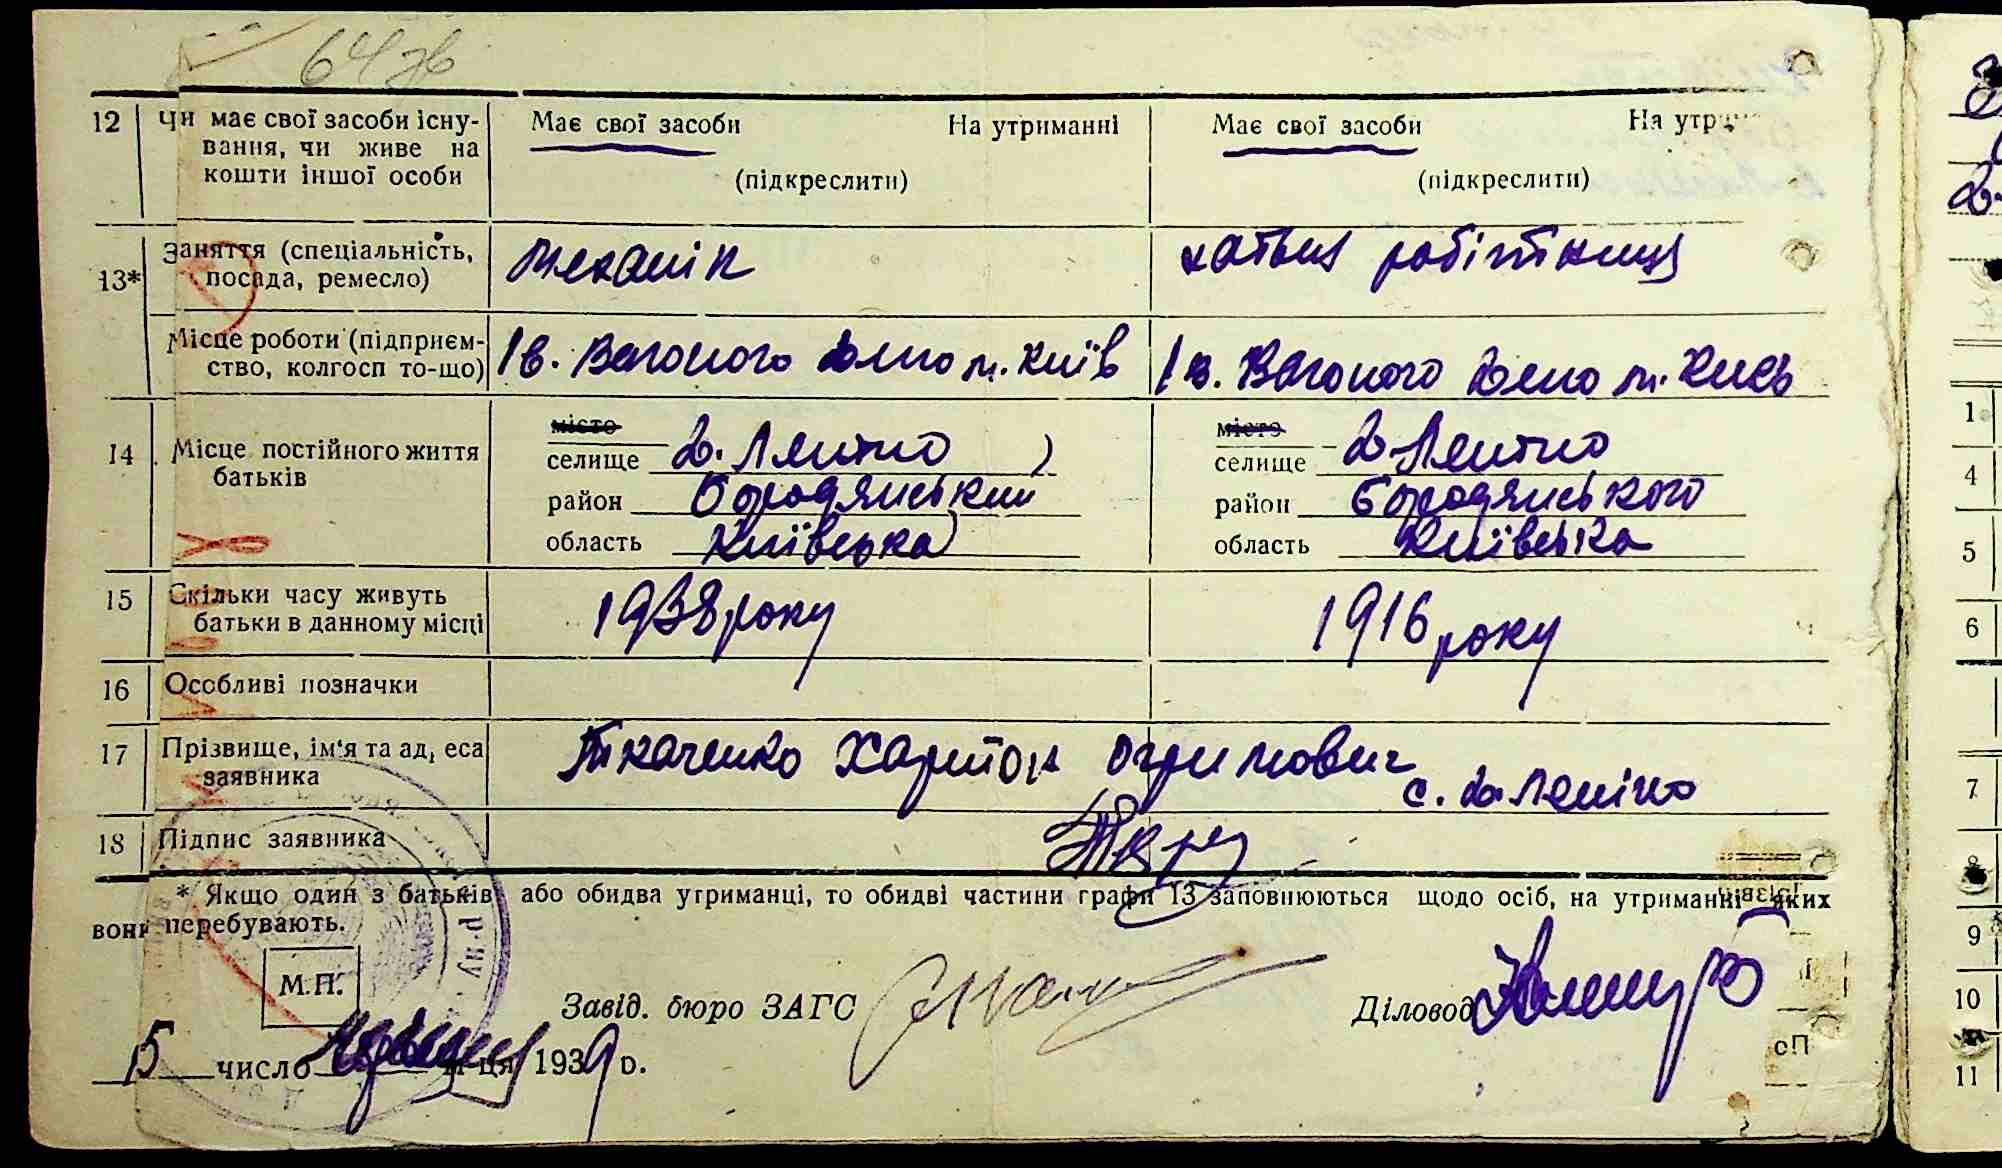 6476
12 Чи має свої засоби існу- Має свої засоби На утриманні Має свої засоби На утрим
вання, чи живе на
кошти іншої особи (підкреслити) (підкреслити)
13* Заняття (спеціальність, механік хатня робітниця
посада, ремесло)
Місце роботи (підприєм- 1 в. Вагоного депо м. Київ 1 в. Вагоного депо м. Київ
ство, колгосп то-що)
14 Місце постійного життя місто місто
батьків селище селище
район Бородянський район Бородянського
область Київська область Київська
15 Скільки часу живуть 1938 року 1916 року
батьки в данному місці
16 Особливі позначки
17 Прізвище, ім'я та адреса Ткаченко Харитон
заявника с.
18 Підпис заявника
* Якщо один з батьків або обидва утриманці, то обидві частини графи 13 заповнюються щодо осіб, на утриманні яких
вони перебувають.
М.П.
Завід. бюро ЗАГС Діловод
15 число м-ця 1939 р.
1
4
5
6
7
8
9
10
11